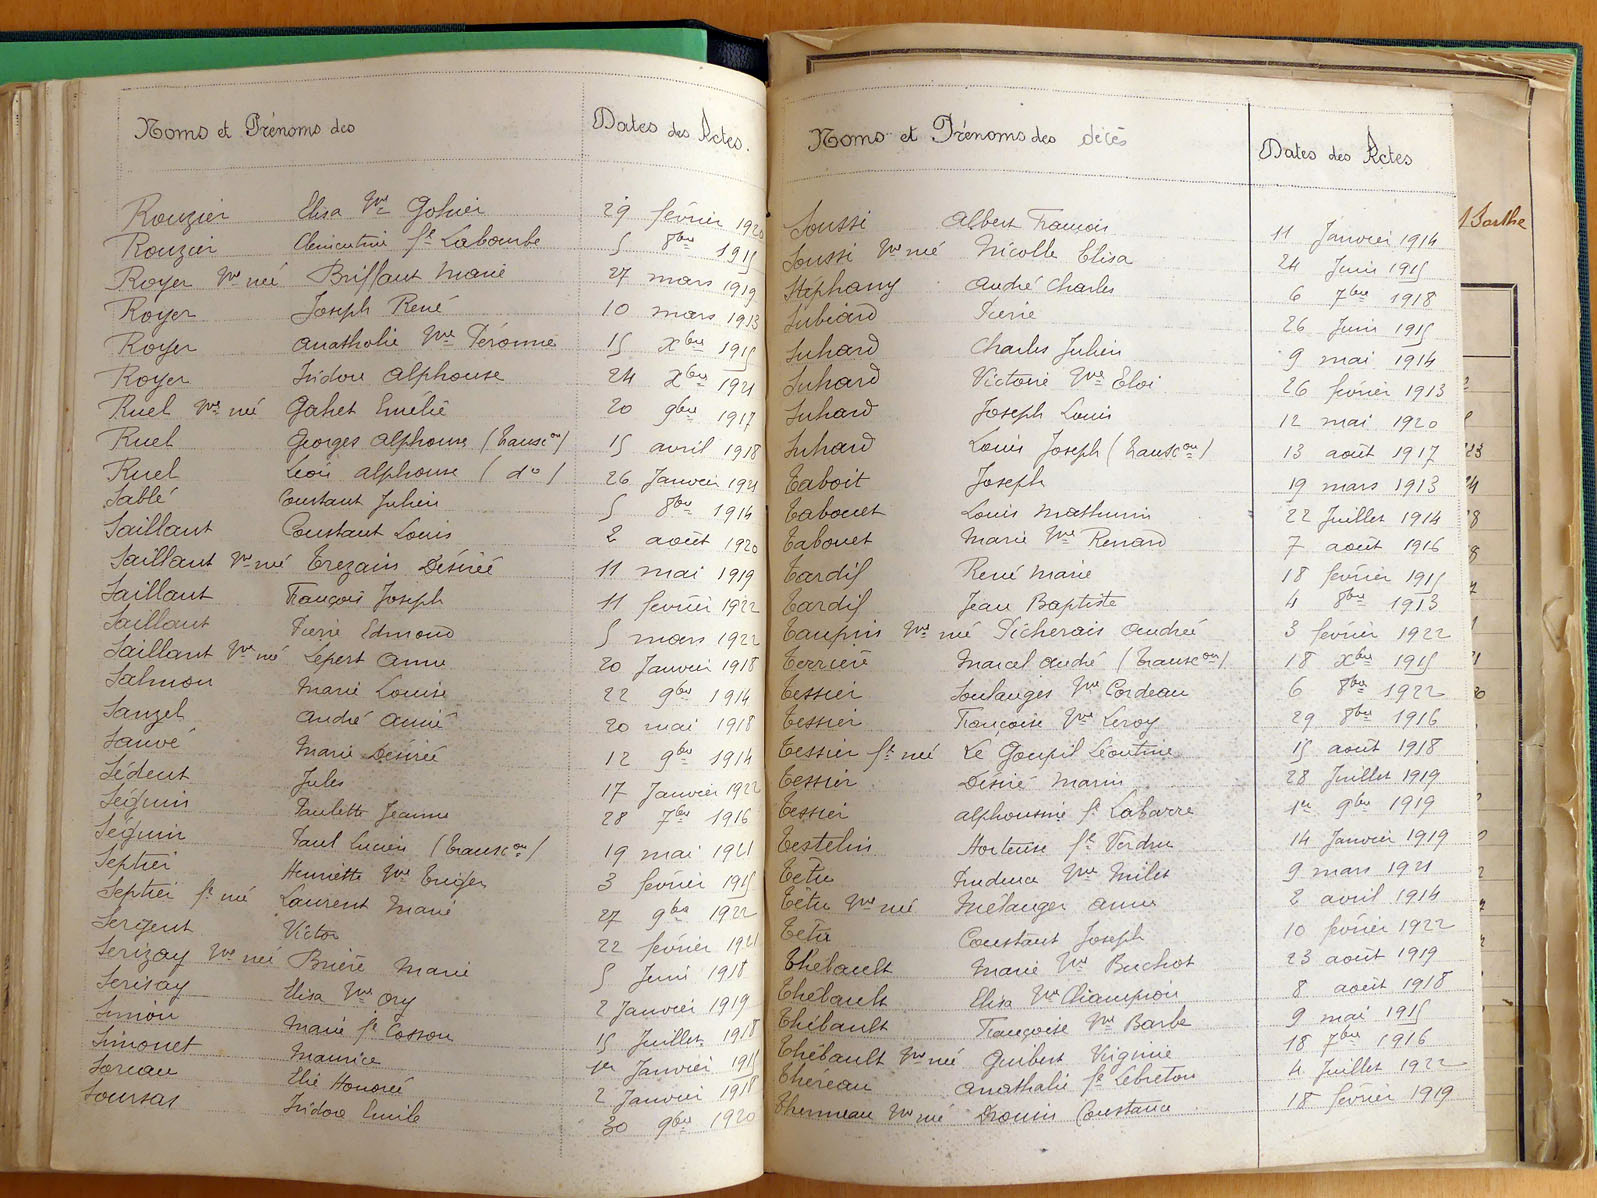 Noms et Prénoms des Dates des Actes.
Rouzier Elisa Vve Gohier 29 février 1920
Rouzier Clémentine fe Labombe 5 8bre 1915
Royer Vve née Briffaut Marie 27 mars 1919
Royer Joseph René 10 mars 1913
Royer Anathalie Vve Péronne 15 Xbre 1915
Royer Isidore Alphonse 24 Xbre 1921
Ruel Vve née Gahet Emélie 20 9bre 1917
Ruel Georges Alphonse (transcon) 15 avril 1918
Ruel Léon Alphonse (do) 26 Janvier 1921
Sablé Constant Julien 5 8bre 1914
Saillant Constant Louis 2 août 1920
Saillant Vve née Trezain Désirée 11 mai 1919
Saillant François Joseph 11 février 1922
Saillant Pierre Edmond 5 mars 1922
Saillant Vve née Lepert Anne 20 Janvier 1918
Salmon Marie Louise 22 9bre 1914
Sanzel André Aimé 20 mai 1918
Sauvé Marie Désirée 12 9bre 1914
Sédent Jules 17 Janvier 1922
Séguin Paulette Jeanne 28 7bre 1916
Séguin Paul Lucien (transcon) 19 mai 1921
Septier Henriette Vve Triger 3 février 1915
Septier fe née Laurent Marie 27 9bre 1922
Sergent Victor 22 février 1921
Serizay Vve née Brière Marie 5 Juin 1918
Serisay Elisa Vve Ory 2 Janvier 1919
Simon Marie fe Cosson 15 Juillet 1918
Simonet Maurice 1er Janvier 1915
Soreau Elie Honoré 2 Janvier 1918
Soursas Isidore Emile 30 9bre 1920
Noms et Prénoms des décès Dates des Actes
Soussi Albert François 11 Janvier 1914
Soussi Vve née Nicolle Elisa 24 Juin 1915
Stéphany André Charles 6 7bre 1918
Subiard Pierre 26 Juin 1915
Suhard Charles Julien 9 mai 1914
Suhard Victoire Vve Eloi 26 février 1913
Suhard Joseph Louis 12 mai 1920
Suhard Louis Joseph (transcon) 13 août 1917
Taboit Joseph 19 mars 1913
Tabouet Louis Mathurin 22 Juillet 1914
Tabouet Marie Vve Renard 7 août 1916
Tardif René Marie 18 février 1915
Tardif Jean Baptiste 4 8bre 1913
Taupin Vve née Picherais Andrée 3 février 1922
Terrière Marcel André (transcon) 18 Xbre 1915
Tessier Soulanges Vve Cordeau 6 8bre 1922
Tessier Françoise Vve Leroy 29 8bre 1916
Tessier fe née Le Goupil Léontine 15 août 1918
Tessier Désiré Marin 28 Juillet 1919
Tessier Alphonsine fe Labarre 1er 9bre 1919
Testelin Hortense fe Verdun 14 Janvier 1919
Tétu Prudence Vve Milet 9 mars 1921
Tétu Vve née Mélanger Anne 2 avril 1914
Tétu Constant Joseph 10 février 1922
Thébault Marie Vve Buchot 23 août 1919
Thébault Elisa Vve Champion 8 août 1918
Thébault Françoise Vve Barbe 9 mai 1915
Thébault Vve née Guibert Virginie 18 7bre 1916
Théreau Anathalie fe Lebreton 4 Juillet 1922
Thenneau Vve née Drouin Constance 18 février 1919
Sarthe